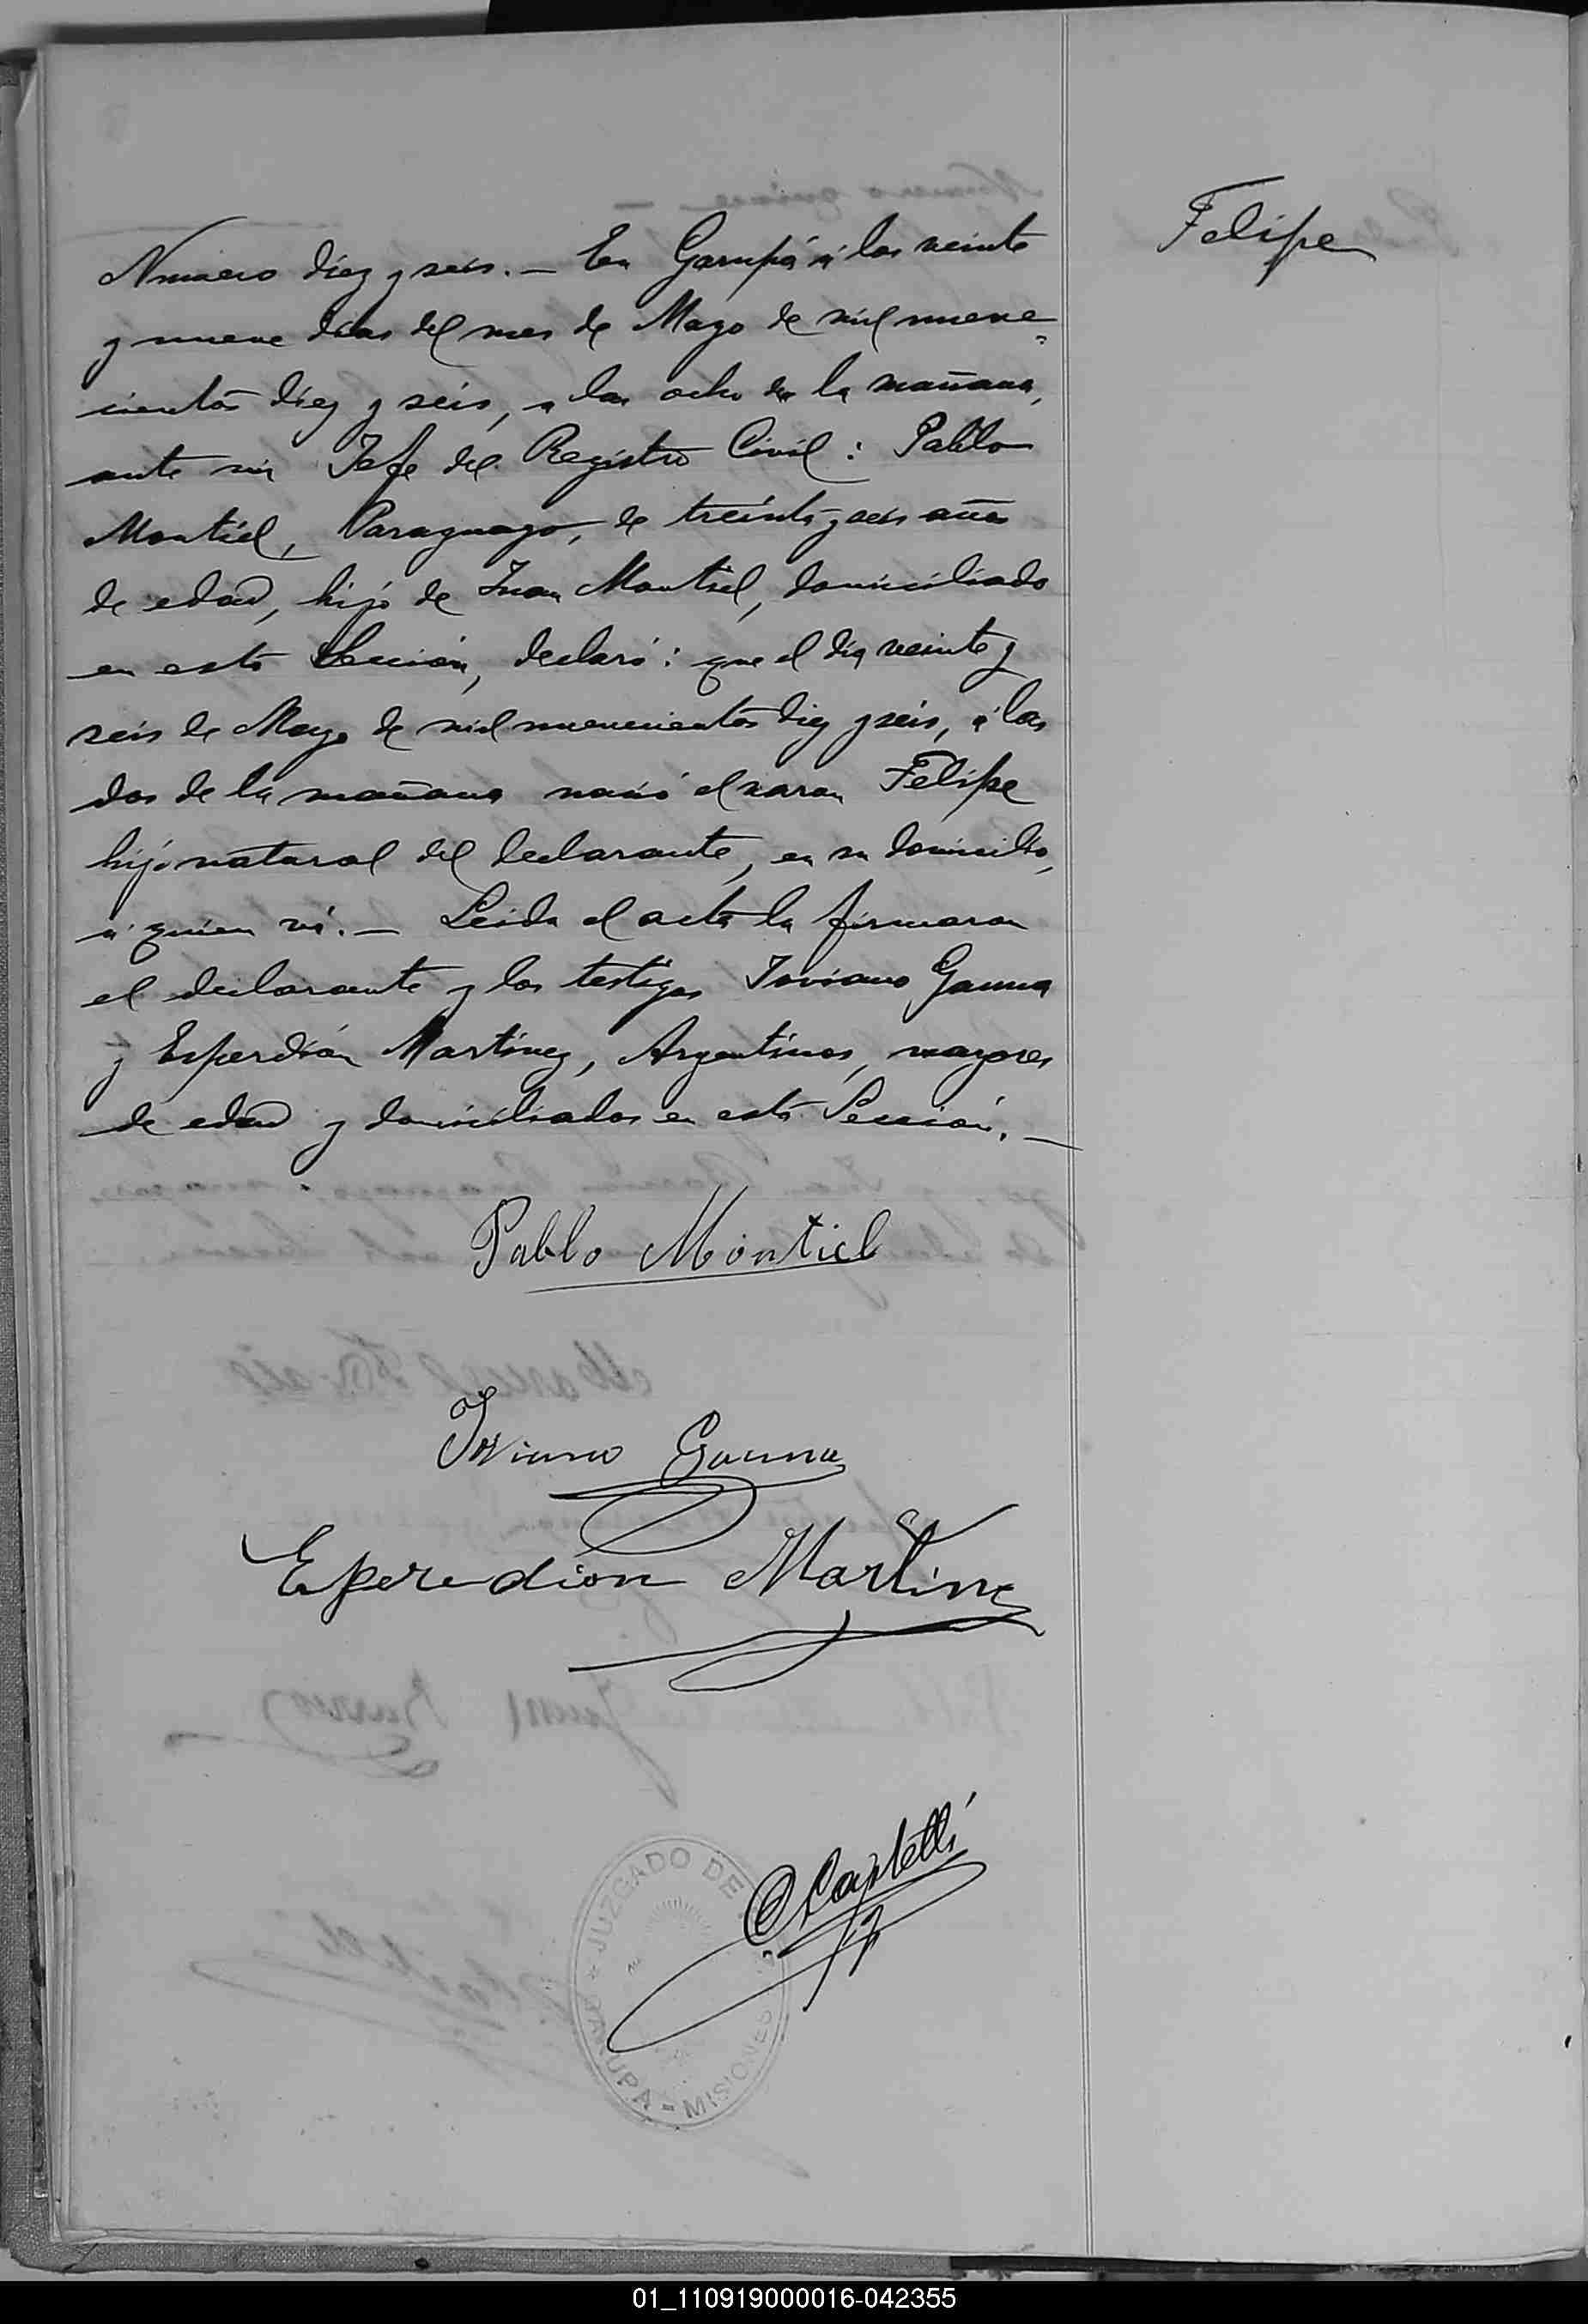 Felipe
Número diez y seis. — En Garupá á los veinte
y nueve días del mes de Mayo de mil nueve=
cientos diez y seis, a las ocho de la mañana,
ante mi Jefe del Registro Civil: Pablo
Montiel, Paraguayo, de treinta y seis años
de edad, hijo de Juan Montiel, domiciliado
en esta Sección, declaró: que el día veinte y
seis de Mayo de mil nuevecientos diez y seis, á las
dos de la mañana nació el varon Felipe
hijo natural del declarante, en su domicilio,
á quien ví. — Leida el acta la firmaron
el declarante y los testigos Joviano Gauna
y Esperdión Martínez, Argentinos, mayores
de edad y domiciliados en esta Sección. —
Pablo Montiel
Joviano Gauna
Eperedion Martinez
CCastelli
JUZGADO DE
GARUPA - MISIONES
01_110919000016-042355